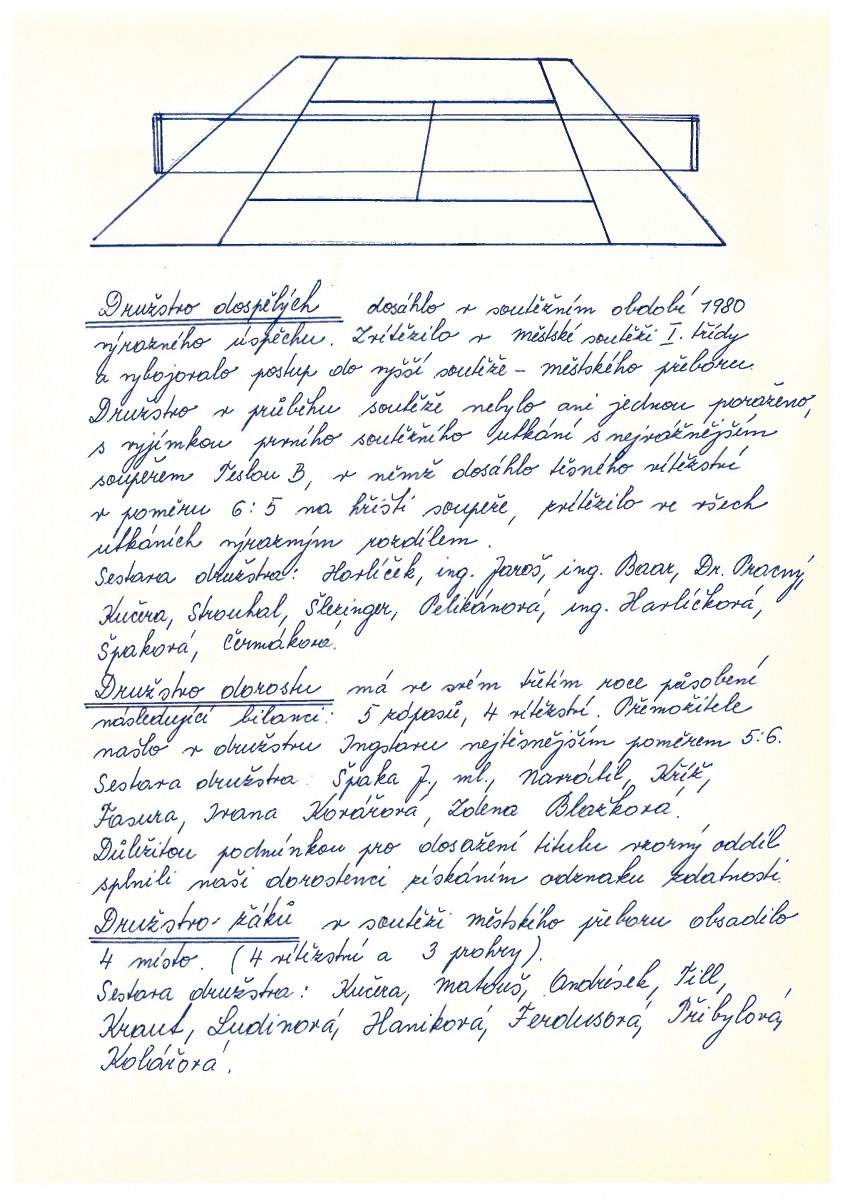 Družstvo dospělých dosáhlo v soutěžním období 1980
výrazného úspěchu. Zvítězilo v městské soutěži I. třídy
a vybojovalo postup do vyšší soutěže - městského přeboru.
Družstvo v průběhu soutěže nebylo ani jednou poraženo,
s vyjímkou prvního soutěžního utkání s nejvážnějším
soupeřem Teslou B, v němž dosáhlo těsného vítězství
v poměru 6:5 na hřišti soupeře, zvítězilo ve všech
utkáních výrazným rozdílem.
Sestava družstva: Harlíček, ing. Jaroš, ing. Baar, Dr. Pracný,
Kučera, Strouhal, Šlezinger, Pelikánová, ing. Harlíčková,
Špaková, Čermáková.
Družstvo dorostu má ve svém třetím roce působení
následující bilanci: 5 zápasů, 4 vítězství. Přemožitele
našlo v družstvu Ingstavu nejtěsnějším poměrem 5:6.
Sestava družstva: Špaka J., ml., Navrátil, Kříž,
Fasura, Ivana Kovářová, Zdena Blažková.
Důležitou podmínkou pro dosažení titulu vzorný oddíl
splnili naši dorostenci získáním odznaku zdatnosti.
Družstvo žáků v soutěži městského přeboru obsadilo
4 místo. (4 vítězství a 3 prohry).
Sestava družstva: Kučera, Matouš, Andrések, Till,
Kraut, Ludinová, Haniková, Ferdusová, Přibylová,
Kolářová.